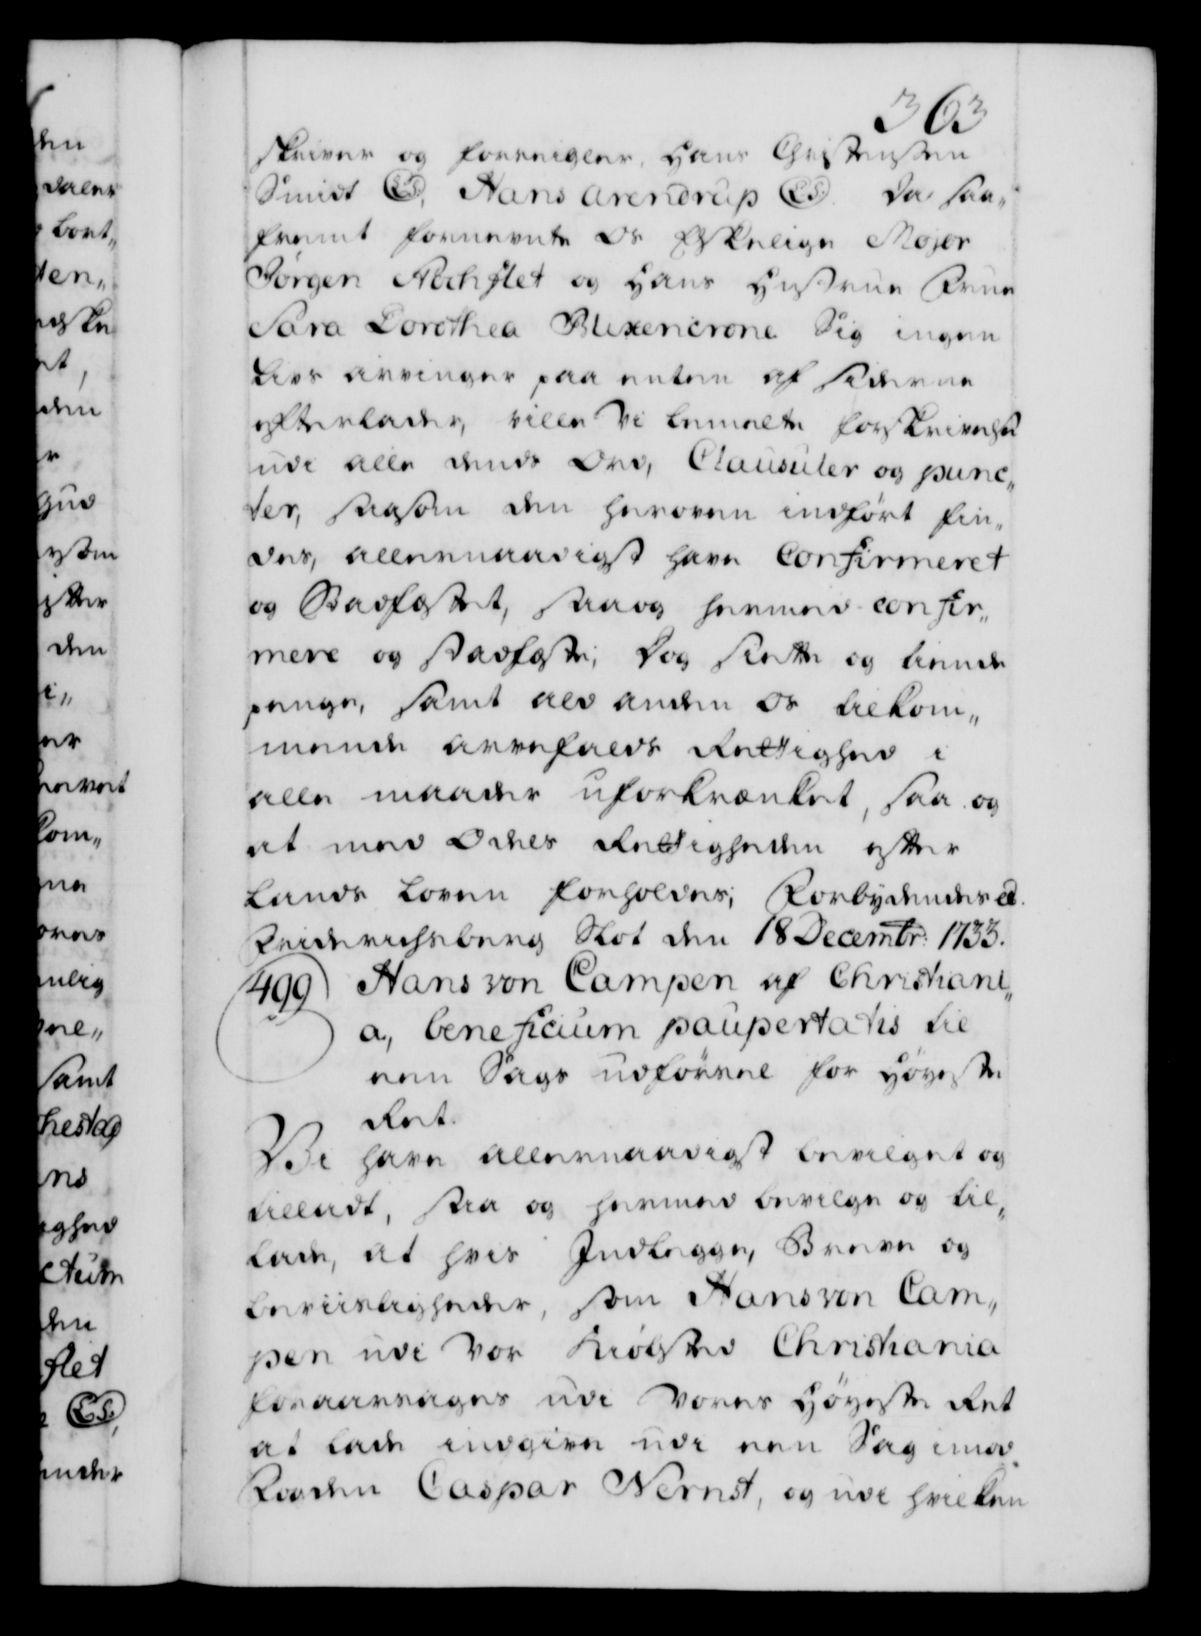 363
skriver og forseigler, Hans Christensen
Smidt (L.S.), Hans Arendrup (L.S.) Da saa„
fremt fornevnte Os Elskelige Major
Jørgen Nochflet og Hans Hustrue Frue
Sara Dorothea Blixencrone Sig ingen
Livs arvinger paa enten af Siderne
efterlader, ville Vi bemelte forskrivelse
udi alle dends Ord, Clausuler og punc„
ter, saasom den heroven indført fin„
des, allernaadigst have Confirmeret
og Stadfæstet, saa og hermed confir„
mere og stadfæste; Dog siette og tiende
penge, samt ald anden Os tilkom„
mende arvefalds Rettighed i
alle maader uforkrænket, saa og
at med Odels Rettigheden efter
Lands Loven forholdes; Forbydendes &c.
Friderichsberg Slot den 18 Decembr: 1733.
499 Hans von Campen af Christiani„
a, beneficium paupertatis til
een Sags udførsel for Høyeste
Ret.
Vi have allernaadigst bevilget og
tilladt, saa og hermed bevilge og til„
lade, at hvis Indlegge, Breve og
beviisligheder, som Hans von Cam„
pen udi Vor Kiøbsted Christiania
foraarsages udi Vores Høyeste Ret
at lade indgive udi een Sag imod
Caspar Nernst, og udi hvilken